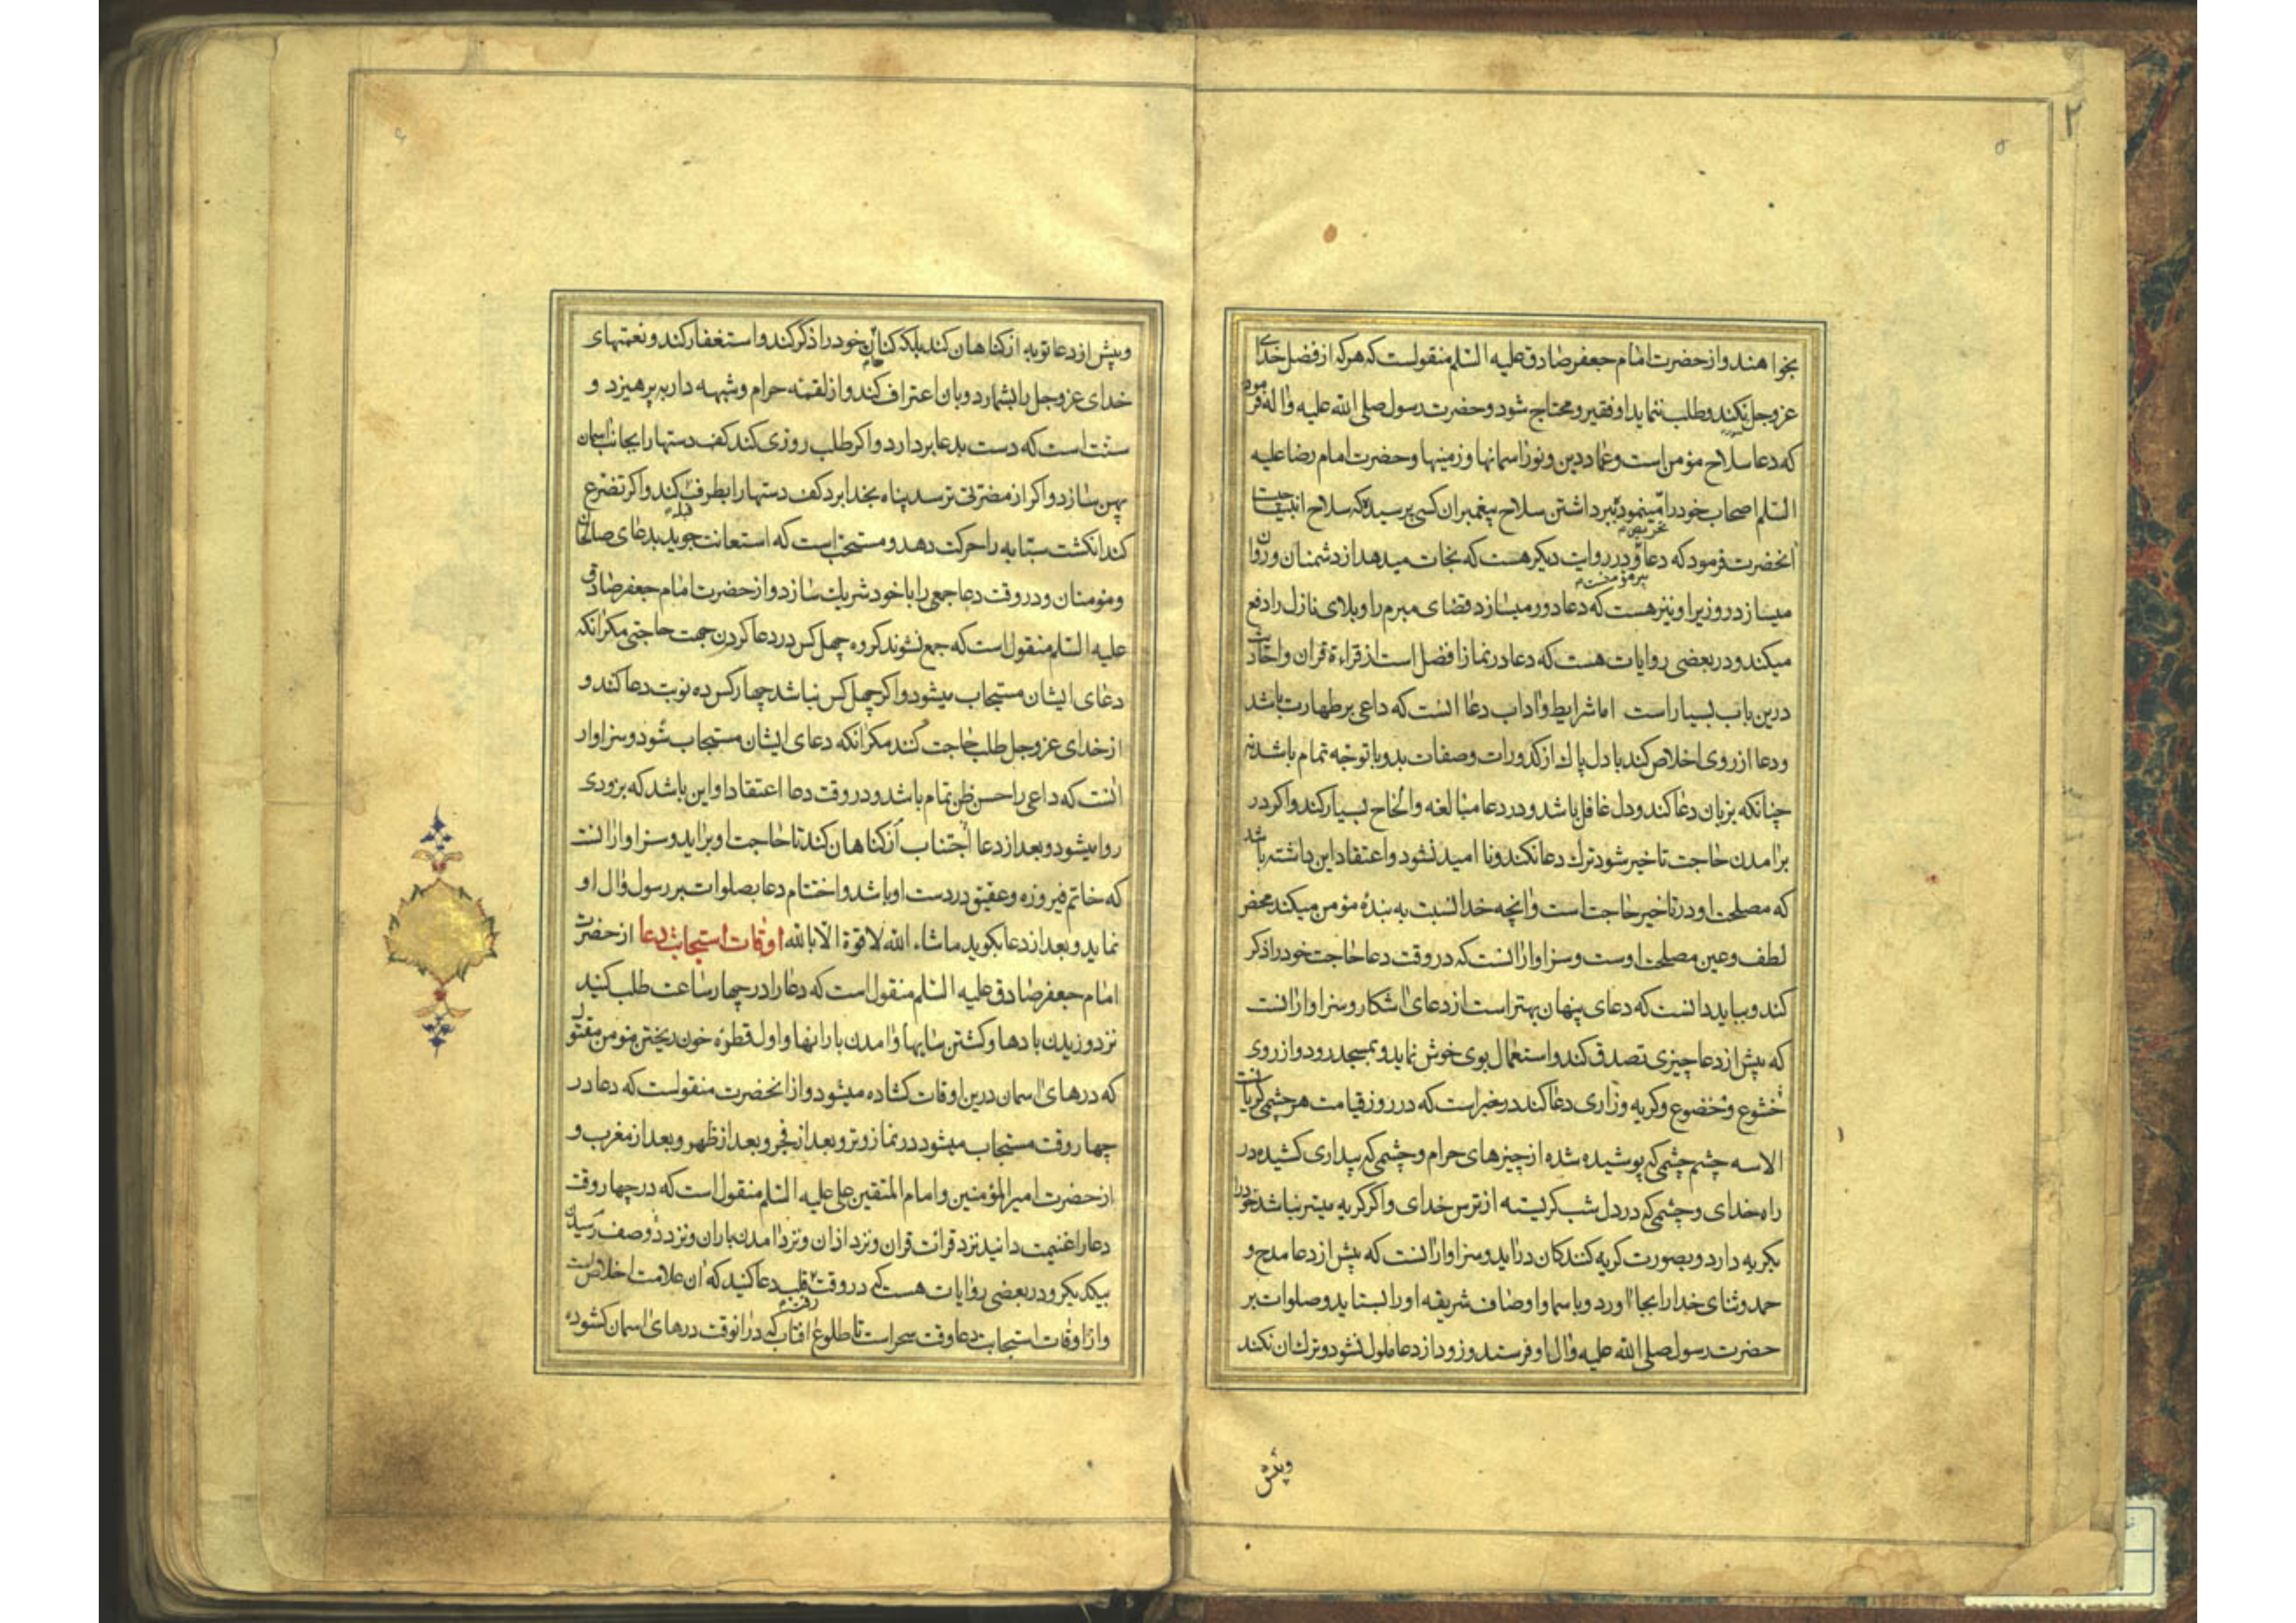 ٢
٥
بخواهند و از حضرت امام جعفر صادق علیه السلم منقولست که هر که از فضل خدای
عز و جل نکند و طلب ننماید او فقیر و محتاج شود و حضرت رسول صلی الله علیه و اله فرمود
که دعا سلاح مؤمن است و عماد دین و نور اسمانها و زمینها و حضرت امام رضا علیه
السلم اصحاب خود را مینمود ببرداشتن سلاح پیغمبران کسی پرسید که سلاح انبیا چیست
تحریص
انحضرت فرمود که دعا و در روایت دیکر هست که نجات میدهد از دشمنان و روان
میسازد روزیرا و نیز هست که دعا دور میسازد قضای مبرم را و بلای نازل را دفع
میکند و در بعضی روایات هست که دعا در نماز افضل است از قراءة قران و احادیث
درین باب بسیار است اما شرایط و اداب دعا انست که داعی بر طهارت باشد
و دعا از روی اخلاص کند با دل پاک از کدورات و صفات بد و با توجه تمام باشد نه
چنانکه بزبان دعا کند و دل غافل باشد و در دعا مبالغه و الحاح بسیار کند و اکر در
برامدن حاجت تاخیر شود ترک دعا نکند و نا امید نشود و اعتقاد این داشته باشد
که مصلحت او در تاخیر حاجت است و انچه خدا نسبت به بندهٔ مؤمن میکند محض
لطف و عین مصلحت اوست و سزاوار انست که در وقت دعا حاجت خود را ذکر
کند و بباید دانست که دعای پنهان بهتر است از دعای اشکار و سزاوار انست
که پیش از دعا چیزی تصدق کند و استعمال بوی خوش نماید و بمسجد رود و از روی
خشوع و خضوع و کریه و زاری دعا کند در خبر است که در روز قیامت هر چشمی کریانست
الا سه چشم چشمی که پوشیده شده از چیزهای حرام و چشمی که بیداری کشیده در
راه خدای و چشمی که در دل شب کریسته از ترس خدای و اکر کریه میسر نباشد خود را
بکریه دارد و بصورت کریه کنندکان دراید و سزاوار انست که پیش از دعا مدح و
حمد و ثنای خدا را بجا اورد و باسما و اوصاف شریفه او را بستاید و صلوات بر
حضرت رسول صلی الله علیه و ال او فرستد و زود از دعا ملول نشود و ترک ان نکند
وپیش
۶
و پیش از دعا توبه از کناهان کند بلکه کناهان خود را ذکر کند و استغفار کند و نعمتهای
خدای عز و جل را بشمارد و بان اعتراف کند و از لقمهٔ حرام و شبهه دار بپرهیزد و
سنت است که دست بدعا بردارد و اکر طلب روزی کند کف دستها را بجانب اسمان
پهن سازد و اکر از مضرتی ترسد پناه بخدا برد کف دستها را بطرف کند و اکر تضرع
قبله
کند انکشت سبابه را حرکت دهد و مستحب است که استعانت جوید بدعای صالحان
و مومنان و در وقت دعا جمعی را با خود شریک سازد و از حضرت امام جعفر صادق
علیه السلم منقول است که جمع نشوند کروه چهل کس در دعا کردن جهت حاجتی مکر انکه
دعای ایشان مستجاب میشود و اکر چهل کس نباشد چهار کس ده نوبت دعا کند و
از خدای عز و جل طلب حاجت کند مکر انکه دعای ایشان مستجاب شود و سزاوار
انست که داعی را حسن ظن تمام باشد و در وقت دعا اعتقاد او این باشد که بزودی
روا میشود و بعد از دعا اجتناب از کناهان کند تا حاجت او براید و سزاوار انست
که خاتم فیروزه و عقیق در دست او باشد و اختتام دعا بصلوات بر رسول و ال او
نماید و بعد از دعا بکوید ما شاء الله لا قوة الا بالله اوقات استجابت دعا از حضرت
امام جعفر صادق علیه السلم منقول است که دعا را در چهار ساعت طلب کنید
نزد وزیدن بادها و کشتن سایها و امدن بارانها و اول قطرهٔ خون ریختن مومن مقتول
که درهای اسمان درین اوقات کشاده میشود و از انحضرت منقولست که دعا در
چهار وقت مستجاب میشود در نماز وتر و بعد از فجر و بعد از ظهر و بعد از مغرب و
از حضرت امیر المؤمنین و امام المتقین علی علیه السلم منقول است که در چهار وقت
دعا را غنیمت دانید نزد قرائت قران و نزد اذان و نزد امدن باران و نزد دو صف رسیدن
بیکدیکر و در بعضی روایات هست که در وقت قلب دعا کنید که ان علامت اخلاص است
رقت
و از اوقات استجابت دعا وقت سحر است تا طلوع افتاب که در انوقت درهای اسمان کشوده